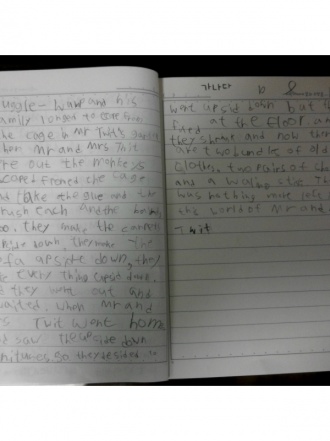 uggle - wump and his
amily longed to escape from
the cage in Mr Twit's garden
hen Mr and Mrs. Twit
re out the monkeys
scaped from the cage
and take the glue and the
rush each and the
oo, they make the carpet
side down, they make the
ofa upside down, they
e every thing upside down.
d they went out and
waited. when Mr and
s Twit went home
d saw the side down
nitures. So they desided to
가나다 b
went upsid down but
at the floor an
they shrank and now ther
are two bundles of old
Clothes, two pairs of sho
and a walking stick. Th
was nothing more left
the world of Mr and
Twit